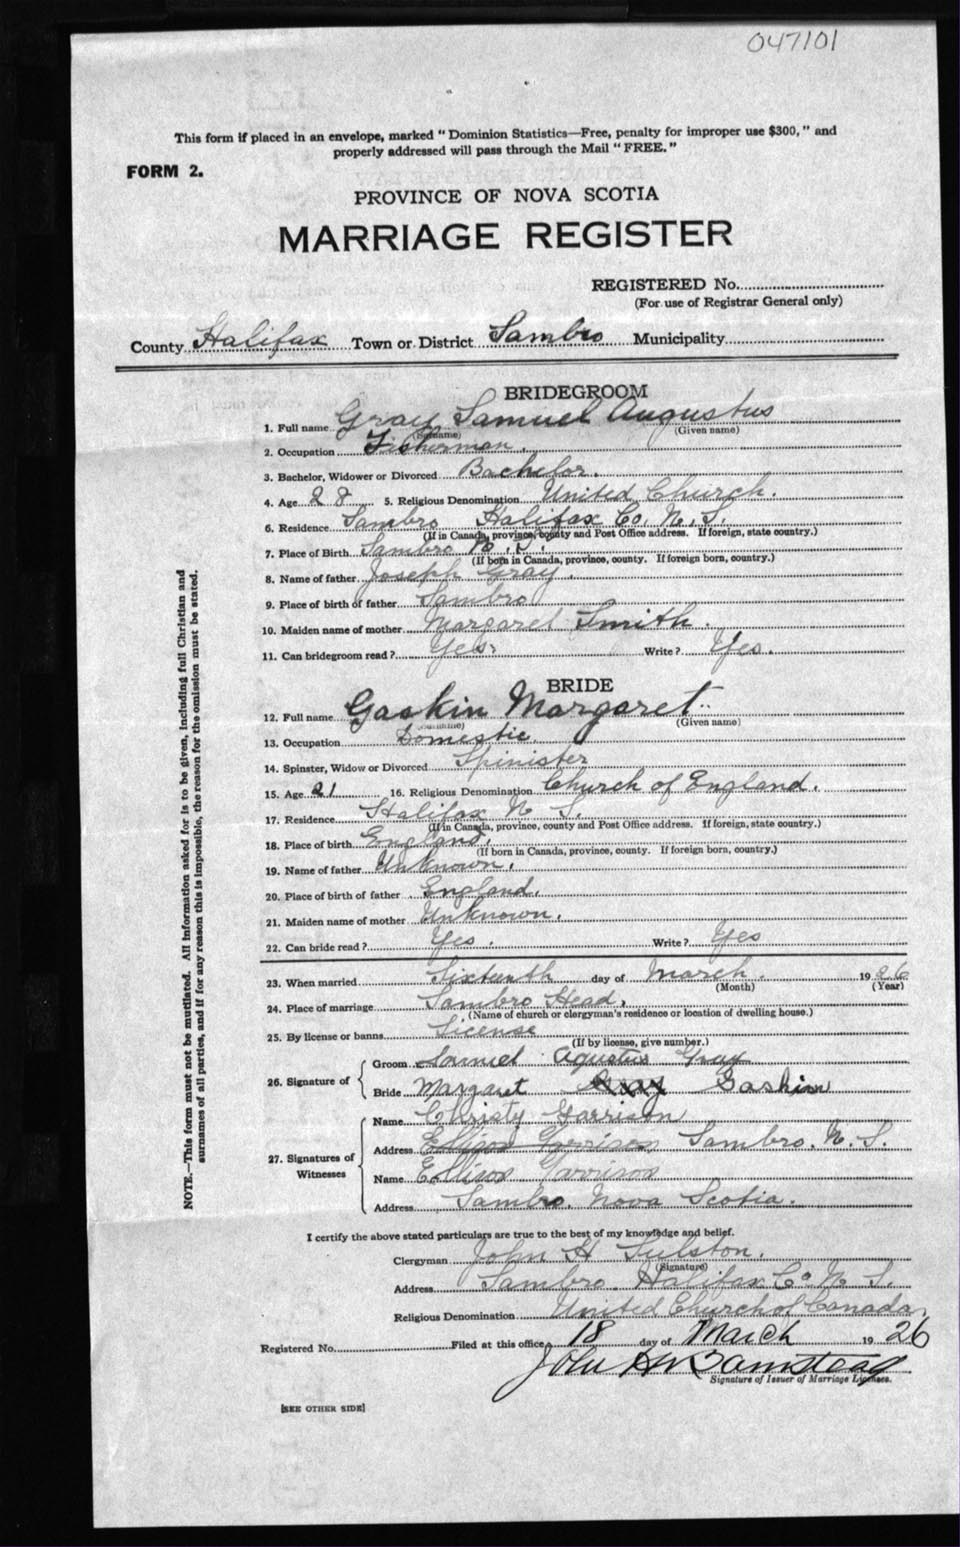 047101
This form if placed in an envelope, marked "Dominion Statistics—Free, penalty for improper use $300," and
properly addressed will pass through the Mail "FREE."
FORM 2.
PROVINCE OF NOVA SCOTIA
MARRIAGE REGISTER
REGISTERED No.
(For use of Registrar General only)
County Halifax Town or District Sambro Municipality
BRIDEGROOM
1. Full name Gray Samuel Augustus
(Surname) (Given name)
2. Occupation Fisherman.
3. Bachelor, Widower or Divorced Bachelor.
4. Age 28 5. Religious Denomination United Church.
6. Residence Sambro Halifax Co. N. S.
(If in Canada, province, county and Post Office address. If foreign, state country.)
7. Place of Birth Sambro N. S.
(If born in Canada, province, county. If foreign born, country.)
8. Name of father Joseph Gray.
9. Place of birth of father Sambro
10. Maiden name of mother Margaret Smith.
11. Can bridegroom read? Yes. Write? Yes.
BRIDE
12. Full name Gaskin Margaret
(Surname) (Given name)
13. Occupation Domestic
14. Spinster, Widow or Divorced Spinister
15. Age 21 16. Religious Denomination Church of England.
17. Residence Halifax N. S.
(If in Canada, province, county and Post Office address. If foreign, state country.)
18. Place of birth England.
(If born in Canada, province, county. If foreign born, country.)
19. Name of father Unknown.
20. Place of birth of father England.
21. Maiden name of mother Unknown.
22. Can bride read? Yes. Write? Yes
23. When married Sixteenth day of March. 1926
(Month) (Year)
24. Place of marriage Sambro Head.
(Name of church or clergyman's residence or location of dwelling house.)
25. By license or banns License
(If by license, give number.)
26. Signature of
Groom Samuel Agustus Gray
Bride Margaret Gray Gaskin
27. Signatures of Witnesses
Name Christy Garrison
Address Ellison Garrison Sambro. N. S.
Name Ellison Garrison
Address Sambro, Nova Scotia.
I certify the above stated particulars are true to the best of my knowledge and belief.
Clergyman John H Tulston.
(Signature)
Address Sambro. Halifax Co. N. S.
Religious Denomination United Church of Canada.
Registered No. Filed at this office 18 day of March 1926
John H W Bamstead
Signature of Issuer of Marriage Licenses.
[SEE OTHER SIDE]
NOTE.—This form must not be mutilated. All information asked for is to be given, including full Christian and
surnames of all parties, and if for any reason this is impossible, the reason for the omission must be stated.